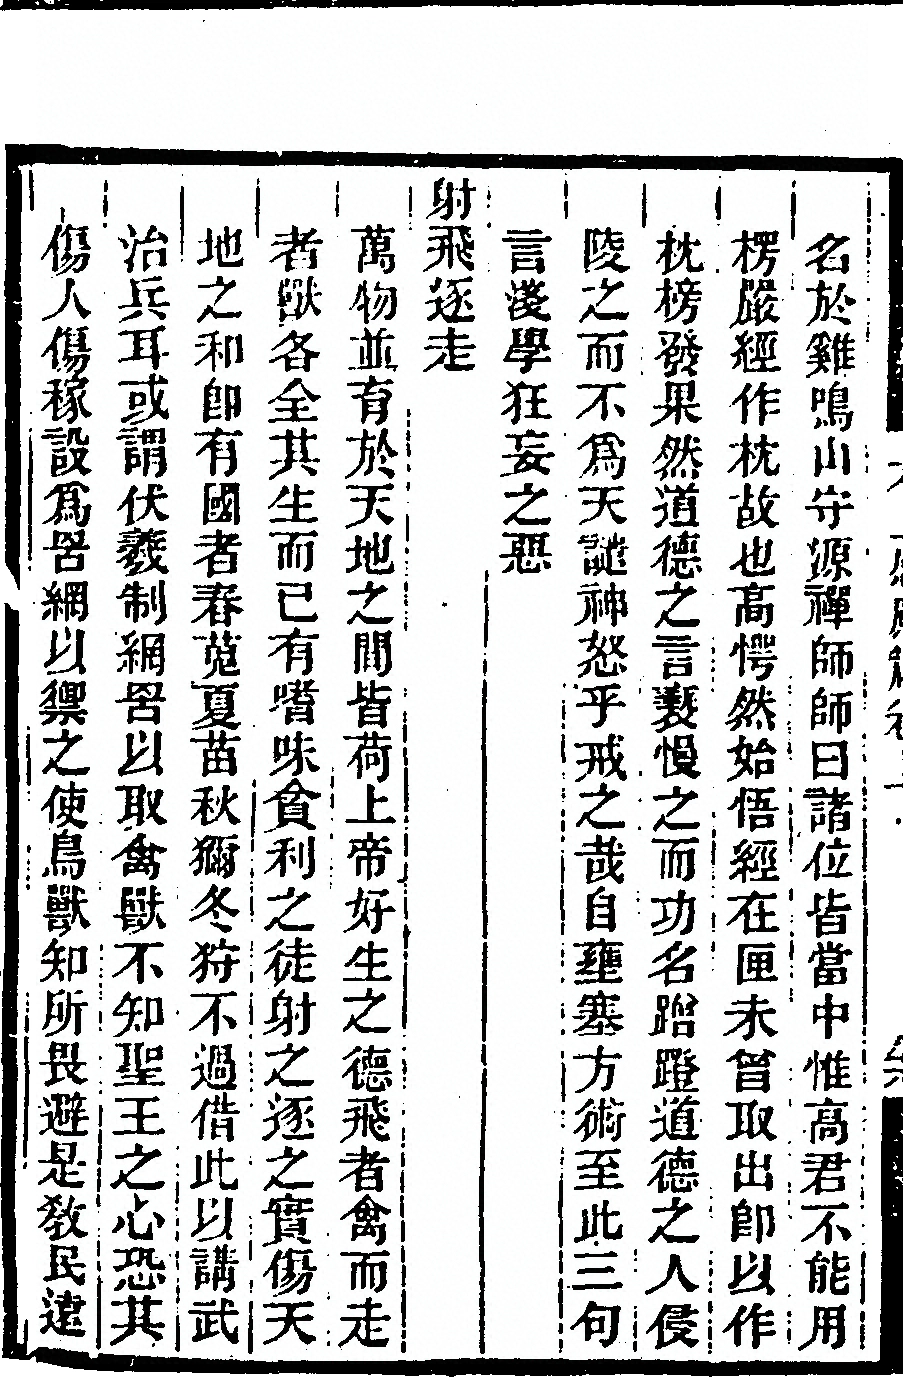 名於雞鳴山守源禪師師曰諸位皆當中惟高君不能用
楞嚴經作枕故也高愕然始悟經在匣未曾取出卽以作
枕榜發果然道德之言褻慢之而功名蹭蹬道德之人侵
陵之而不爲天譴神怒乎戒之哉自壅塞方術至此三句
言淺學狂妄之惡
射飛逐走
萬物並育於天地之間皆荷上帝好生之德飛者禽而走
者獸各全其生而已有嗜味貪利之徒射之逐之實傷天
地之和卽有國者春蒐夏苗秋獮冬狩不過借此以講武
治兵耳或謂伏羲制網罟以取禽獸不知聖王之心恐其
傷人傷稼設爲罟網以禦之使鳥獸知所畏避是敎民遠